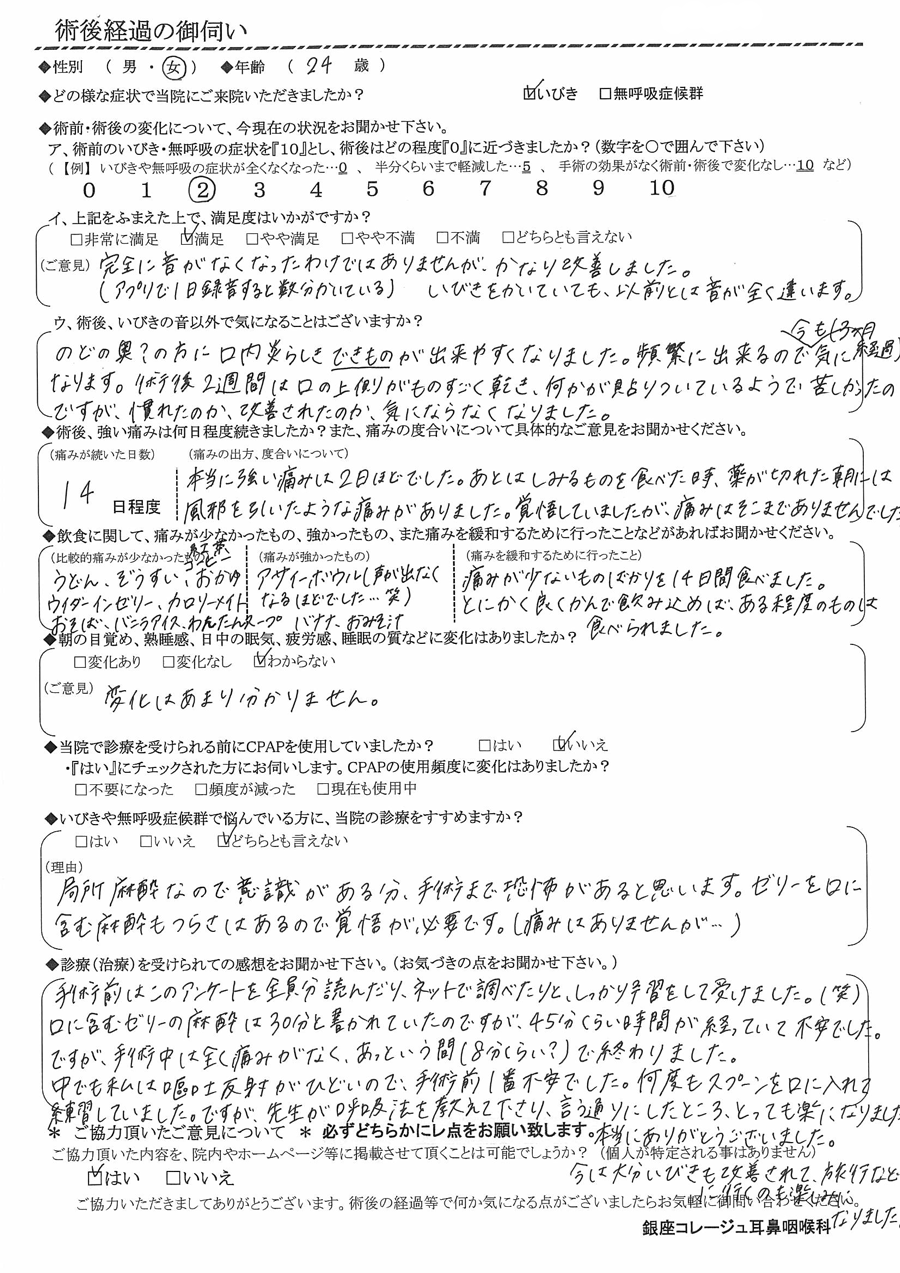 術後経過の御伺い
◆性別 （ 男 ・ 女 ） ◆年齢 （ 24 歳 ）
◆どの様な症状で当院にご来院いただきましたか？ ☑いびき □無呼吸症候群
◆術前・術後の変化について、今現在の状況をお聞かせ下さい。
ア、術前のいびき・無呼吸の症状を『10』とし、術後はどの程度『0』に近づきましたか？（数字を○で囲んで下さい）
（【例】 いびきや無呼吸の症状が全くなくなった…0 、 半分くらいまで軽減した…5 、 手術の効果がなく術前・術後で変化なし…10 など）
0 1 2 3 4 5 6 7 8 9 10
イ、上記をふまえた上で、満足度はいかがですか？
□非常に満足 ☑満足 □やや満足 □やや不満 □不満 □どちらとも言えない
（ご意見） 完全に音がなくなったわけではありませんが、かなり改善しました。
（アプリで1日録音すると数分かいている） いびきをかいていても、以前とは音が全く違います。
ウ、術後、いびきの音以外で気になることはございますか？
今も（3ヶ月経過）
のどの奥？の方に口内炎らしきできものが出来やすくなりました。頻繁に出来るので気に
なります。術後2週間は口の上側がものすごく乾き、何かが貼りついているようで苦しかったの
ですが、慣れたのか、改善されたのか、気にならなくなりました。
◆術後、強い痛みは何日程度続きましたか？また、痛みの度合いについて具体的なご意見をお聞かせください。
（痛みが続いた日数） （痛みの出方、度合いについて）
14 日程度
本当に強い痛みは2日ほどでした。あとはしみるものを食べた時、薬が切れた朝には
風邪を引いたような痛みがありました。覚悟していましたが、痛みはそこまでありませんでした
◆飲食に関して、痛みが少なかったもの、強かったもの、また痛みを緩和するために行ったことなどがあればお聞かせください。
（比較的痛みが少なかったもの） （痛みが強かったもの） （痛みを緩和するために行ったこと）
紅茶
コーヒー
うどん、ぞうすい、おかゆ
ウイダーインゼリー、カロリーメイト
おそば、バニラアイス、わんたんスープ バナナ、おみそ汁
アサイーボウル（声が出なく
なるほどでした…笑）
痛みが少ないものばかりを14日間食べました。
とにかく良くかんで飲み込めば、ある程度のものは
食べられました。
◆朝の目覚め、熟睡感、日中の眠気、疲労感、睡眠の質などに変化はありましたか？
□変化あり □変化なし ☑わからない
（ご意見） 変化はあまり分かりません。
◆当院で診療を受けられる前にCPAPを使用していましたか？ □はい ☑いいえ
・『はい』にチェックされた方にお伺いします。CPAPの使用頻度に変化はありましたか？
□不要になった □頻度が減った □現在も使用中
◆いびきや無呼吸症候群で悩んでいる方に、当院の診療をすすめますか？
□はい □いいえ ☑どちらとも言えない
（理由）
局所麻酔なので意識がある分、手術まで恐怖があると思います。ゼリーを口に
含む麻酔もつらさはあるので覚悟が必要です。（痛みはありませんが…）
◆診療（治療）を受けられての感想をお聞かせ下さい。（お気づきの点をお聞かせ下さい。）
手術前はこのアンケートを全員分読んだり、ネットで調べたりと、しっかり予習をして受けました。（笑）
口に含むゼリーの麻酔は30分と書かれていたのですが、45分くらい時間が経っていて不安でした。
ですが、手術中は全く痛みがなく、あっという間（8分くらい？）で終わりました。
中でも私は嘔吐反射がひどいので、手術前1番不安でした。何度もスプーンを口に入れて
練習していました。ですが、先生が呼吸法を教えて下さり、言う通りにしたところ、とっても楽になりました
本当にありがとうございました。
＊ ご協力頂いたご意見について ＊ 必ずどちらかにレ点をお願い致します。
ご協力頂いた内容を、院内やホームページ等に掲載させて頂くことは可能でしょうか？（個人が特定される事はありません）
☑はい □いいえ
今は大分いびきも改善されて、旅行など
に行くのも楽しみに
なりました。
ご協力いただきましてありがとうございます。術後の経過等で何か気になる点がございましたらお気軽に御問い合わせください。
銀座コレージュ耳鼻咽喉科